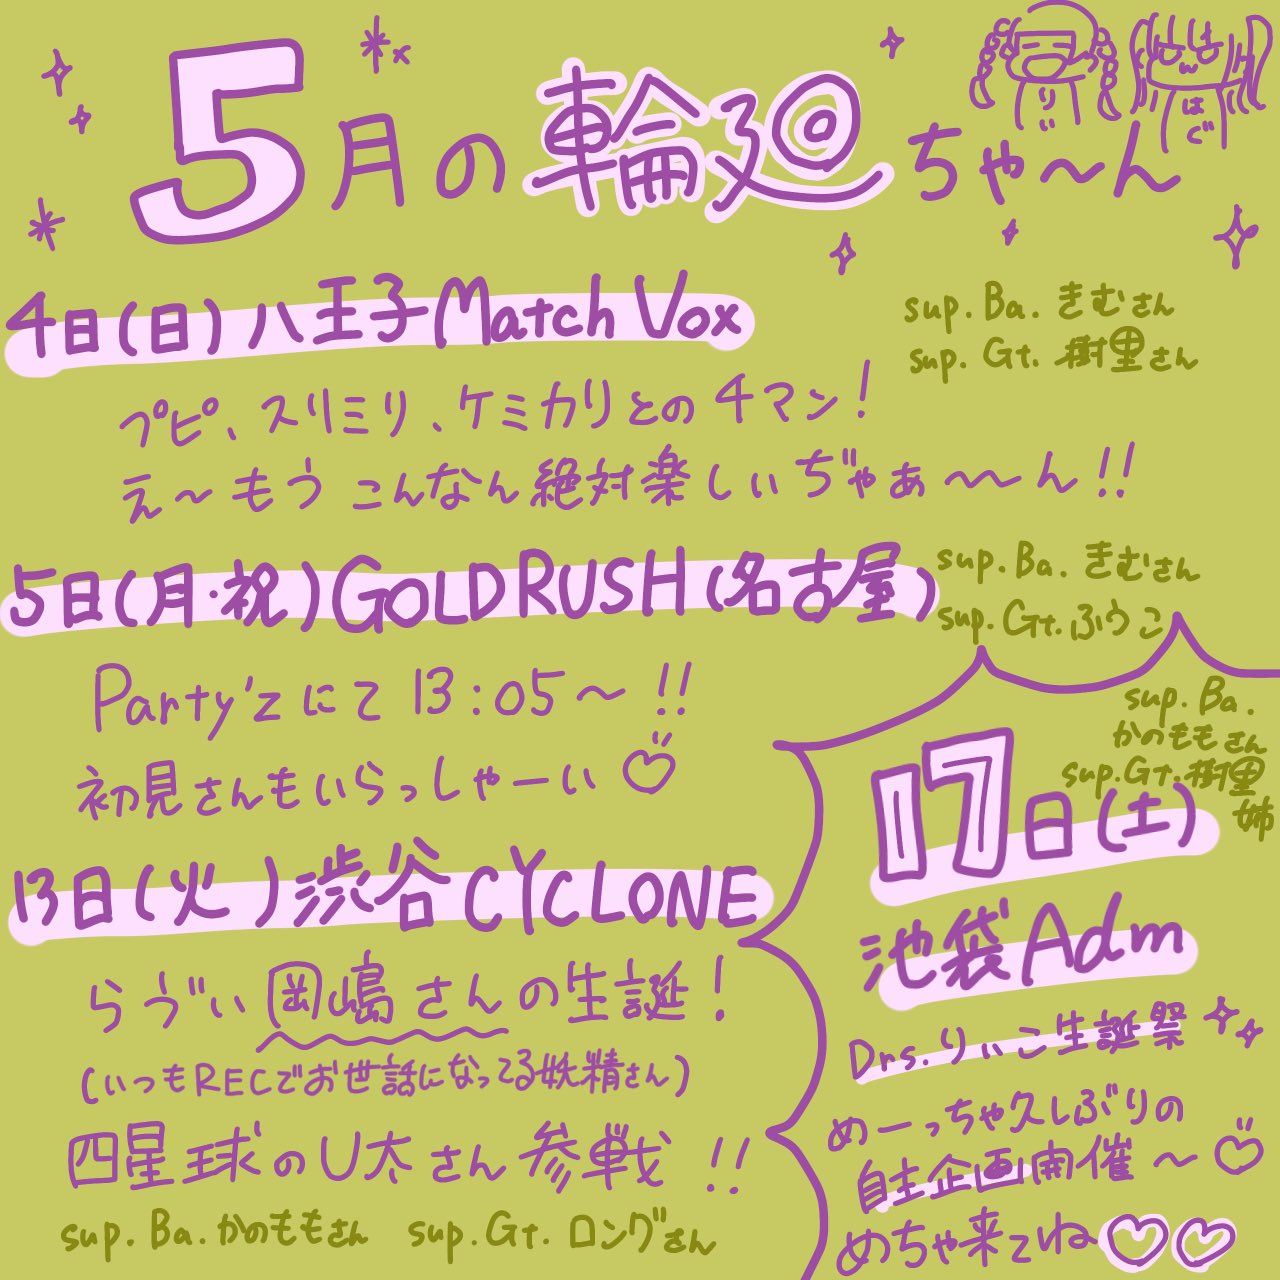 5月の輪廻ちゃ〜ん
りぃ
はぐ
4日(日)八王子Match Vox
sup. Ba. きむさん
sup. Gt. 樹里さん
プピ、スリミリ、ケミカリとの4マン!
え〜もうこんなん絶対楽しいぢゃぁ〜〜ん!!
5日(月・祝)GOLDRUSH(名古屋)
sup. Ba. きむさん
sup. Gt. ふうこ
Party'zにて13:05〜!!
初見さんもいらっしゃーい♡
13日(火)渋谷CYCLONE
らゔぃ岡嶋さんの生誕!
(いつもRECでお世話になってる妖精さん)
四星球のU太さん参戦!!
sup. Ba. かのももさん sup. Gt. ロングさん
sup. Ba.
かのももさん
sup. Gt. 樹里
姉
17日(土)
池袋Adm
Drs. りぃこ生誕祭
めーっちゃ久しぶりの
自主企画開催〜♡
めちゃ来てね♡♡